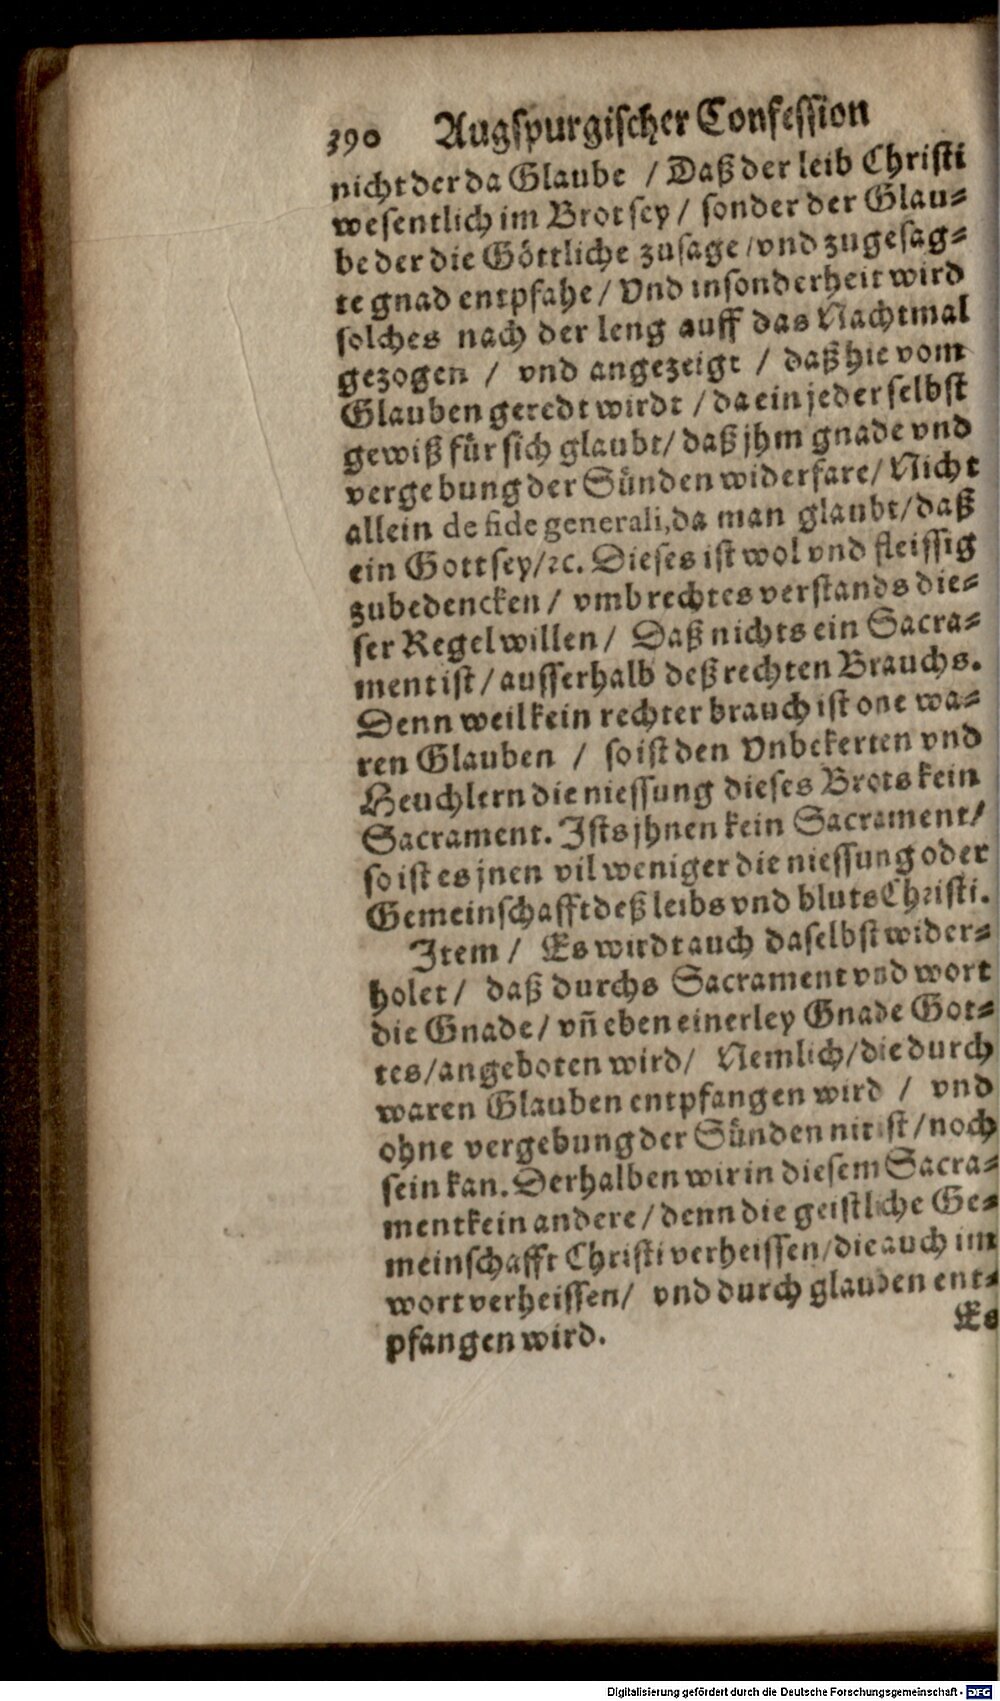 390 Augspurgischer Confession
nicht der da Glaube / Daß der leib Christi
wesentlich im Brot sey / sonder der Glau⸗
be der die Göttliche zusage / vnd zugesag⸗
te gnad entpfahe / Vnd insonderheit wird
solches nach der leng auff das Nachtmal
gezogen / vnd angezeigt / daß hie vom
Glauben geredt wirdt / da ein jeder selbst
gewiß für sich glaubt / daß jhm gnade vnd
vergebung der Sünden widerfare / Nicht
allein de fide generali, da man glaubt / daß
ein Gott sey / ꝛc. Dieses ist wol vnd fleissig
zubedencken / vmb rechtes verstands die⸗
ser Regel willen / Daß nichts ein Sacra⸗
ment ist / ausserhalb deß rechten Brauchs.
Denn weil kein rechter brauch ist one wa⸗
ren Glauben / so ist den Vnbekerten vnd
Heuchlern die niessung dieses Brots kein
Sacrament. Ists jhnen kein Sacrament /
so ist es jnen vil weniger die niessung oder
Gemeinschafft deß leibs vnd bluts Christi.
Item / Es wirdt auch daselbst wider⸗
holet / daß durchs Sacrament vnd wort
die Gnade / vñ eben einerley Gnade Got⸗
tes / angeboten wird / Nemlich / die durch
waren Glauben entpfangen wird / vnd
ohne vergebung der Sünden nit ist / noch
sein kan. Derhalben wir in diesem Sacra⸗
ment kein andere / denn die geistliche Ge⸗
meinschafft Christi verheissen / die auch im
wort verheissen / vnd durch glauben ent⸗
pfangen wird.
Es
Digitalisierung gefördert durch die Deutsche Forschungsgemeinschaft - DFG